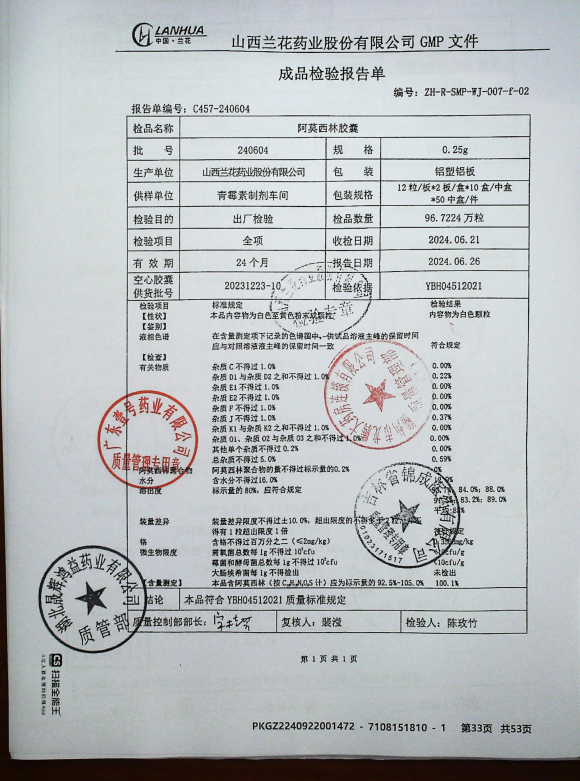 LANHUA
中国·兰花
山西兰花药业股份有限公司 GMP 文件
成品检验报告单
编号：ZH-R-SMP-WJ-007-f-02
报告单编号：C457-240604
检品名称 阿莫西林胶囊
批 号 240604 规 格 0.25g
生产单位 山西兰花药业股份有限公司 包 装 铝塑铝板
供样单位 青霉素制剂车间 包装规格 12粒/板*2板/盒*10盒/中盒*50中盒/件
检验目的 出厂检验 检品数量 96.7224 万粒
检验项目 全项 收检日期 2024.06.21
有 效 期 24 个月 报告日期 2024.06.26
空心胶囊供货批号 20231223-10 检验依据 YBH04512021
检验项目 标准规定 检验结果
【性状】 本品内容物为白色至黄色粉末或颗粒 内容物为白色颗粒
【鉴别】
液相色谱 在含量测定项下记录的色谱图中，供试品溶液主峰的保留时间
应与对照溶液主峰的保留时间一致 符合规定
【检查】
有关物质 杂质 C 不得过 1.0% 0.00%
杂质 D1 与杂质 D2 之和不得过 1.0% 0.22%
杂质 E1 不得过 1.0% 0.00%
杂质 E2 不得过 1.0% 0.00%
杂质 F 不得过 1.0% 0.00%
杂质 J 不得过 1.0% 0.37%
杂质 K1 与杂质 K2 之和不得过 1.0% 0.00%
杂质 O1、杂质 O2 与杂质 O3 之和不得过 1.0% 0.00%
其他单个杂质不得过 0.2% 0.00%
总杂质不得过 5.0% 0.59%
阿莫西林聚合物 阿莫西林聚合物的量不得过标示量的0.2%
水分 含水分不得过16.0%
溶出度 标示量的 80%，应符合规定 84.0%；88.0%
83.2%；89.0%
装量差异 装量差异限度不得过±10.0%，超出限度的不得多于2粒
得有 1 粒超出限度 1 倍
铬 含铬不得过百万分之二（≤2mg/kg）
微生物限度 需氧菌总数每 1g 不得过 10³cfu
霉菌和酵母菌总数每 1g 不得过 10²cfu <10cfu/g
大肠埃希菌每 1g 不得检出 未检出
【含量测定】 本品含阿莫西林（按 C₁₆H₁₉N₃O₅S 计）应为标示量的 92.5%-105.0% 100.1%
结论 本品符合 YBH04512021 质量标准规定
质量控制部部长： 复核人：裴滢 检验人：陈玫竹
第 1 页 共 1 页
广东壹号药业有限公司
质量管理专用章
湖北晟辉鸿益药业有限公司
质管部
扫描全能王
PKGZ2240922001472 - 7108151810 - 1 第33页 共53页